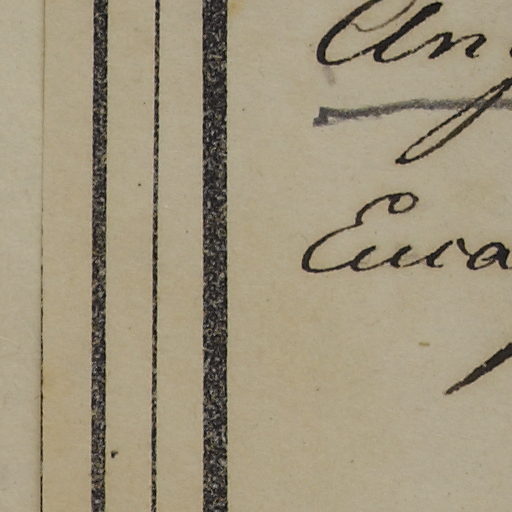 Ang
Euca